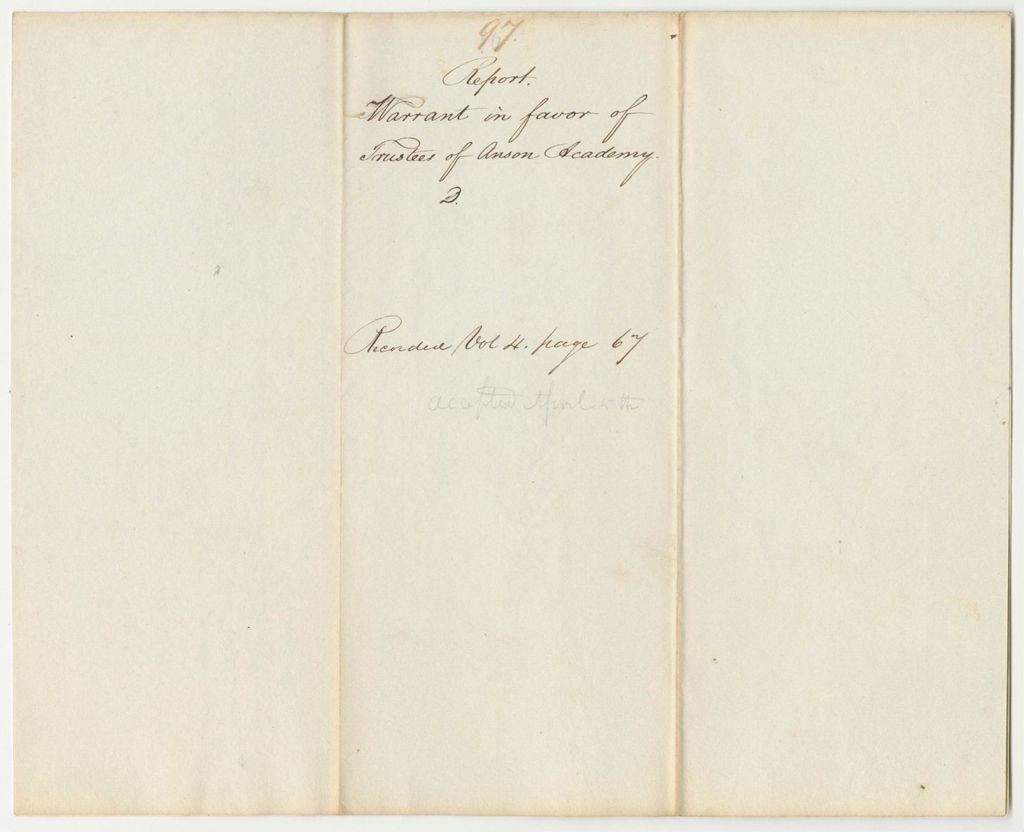 97.
Report.
Warrant in favor of
Trustees of Anson Academy.
D.
Recorded Vol 4. page 67
accepted April 5th